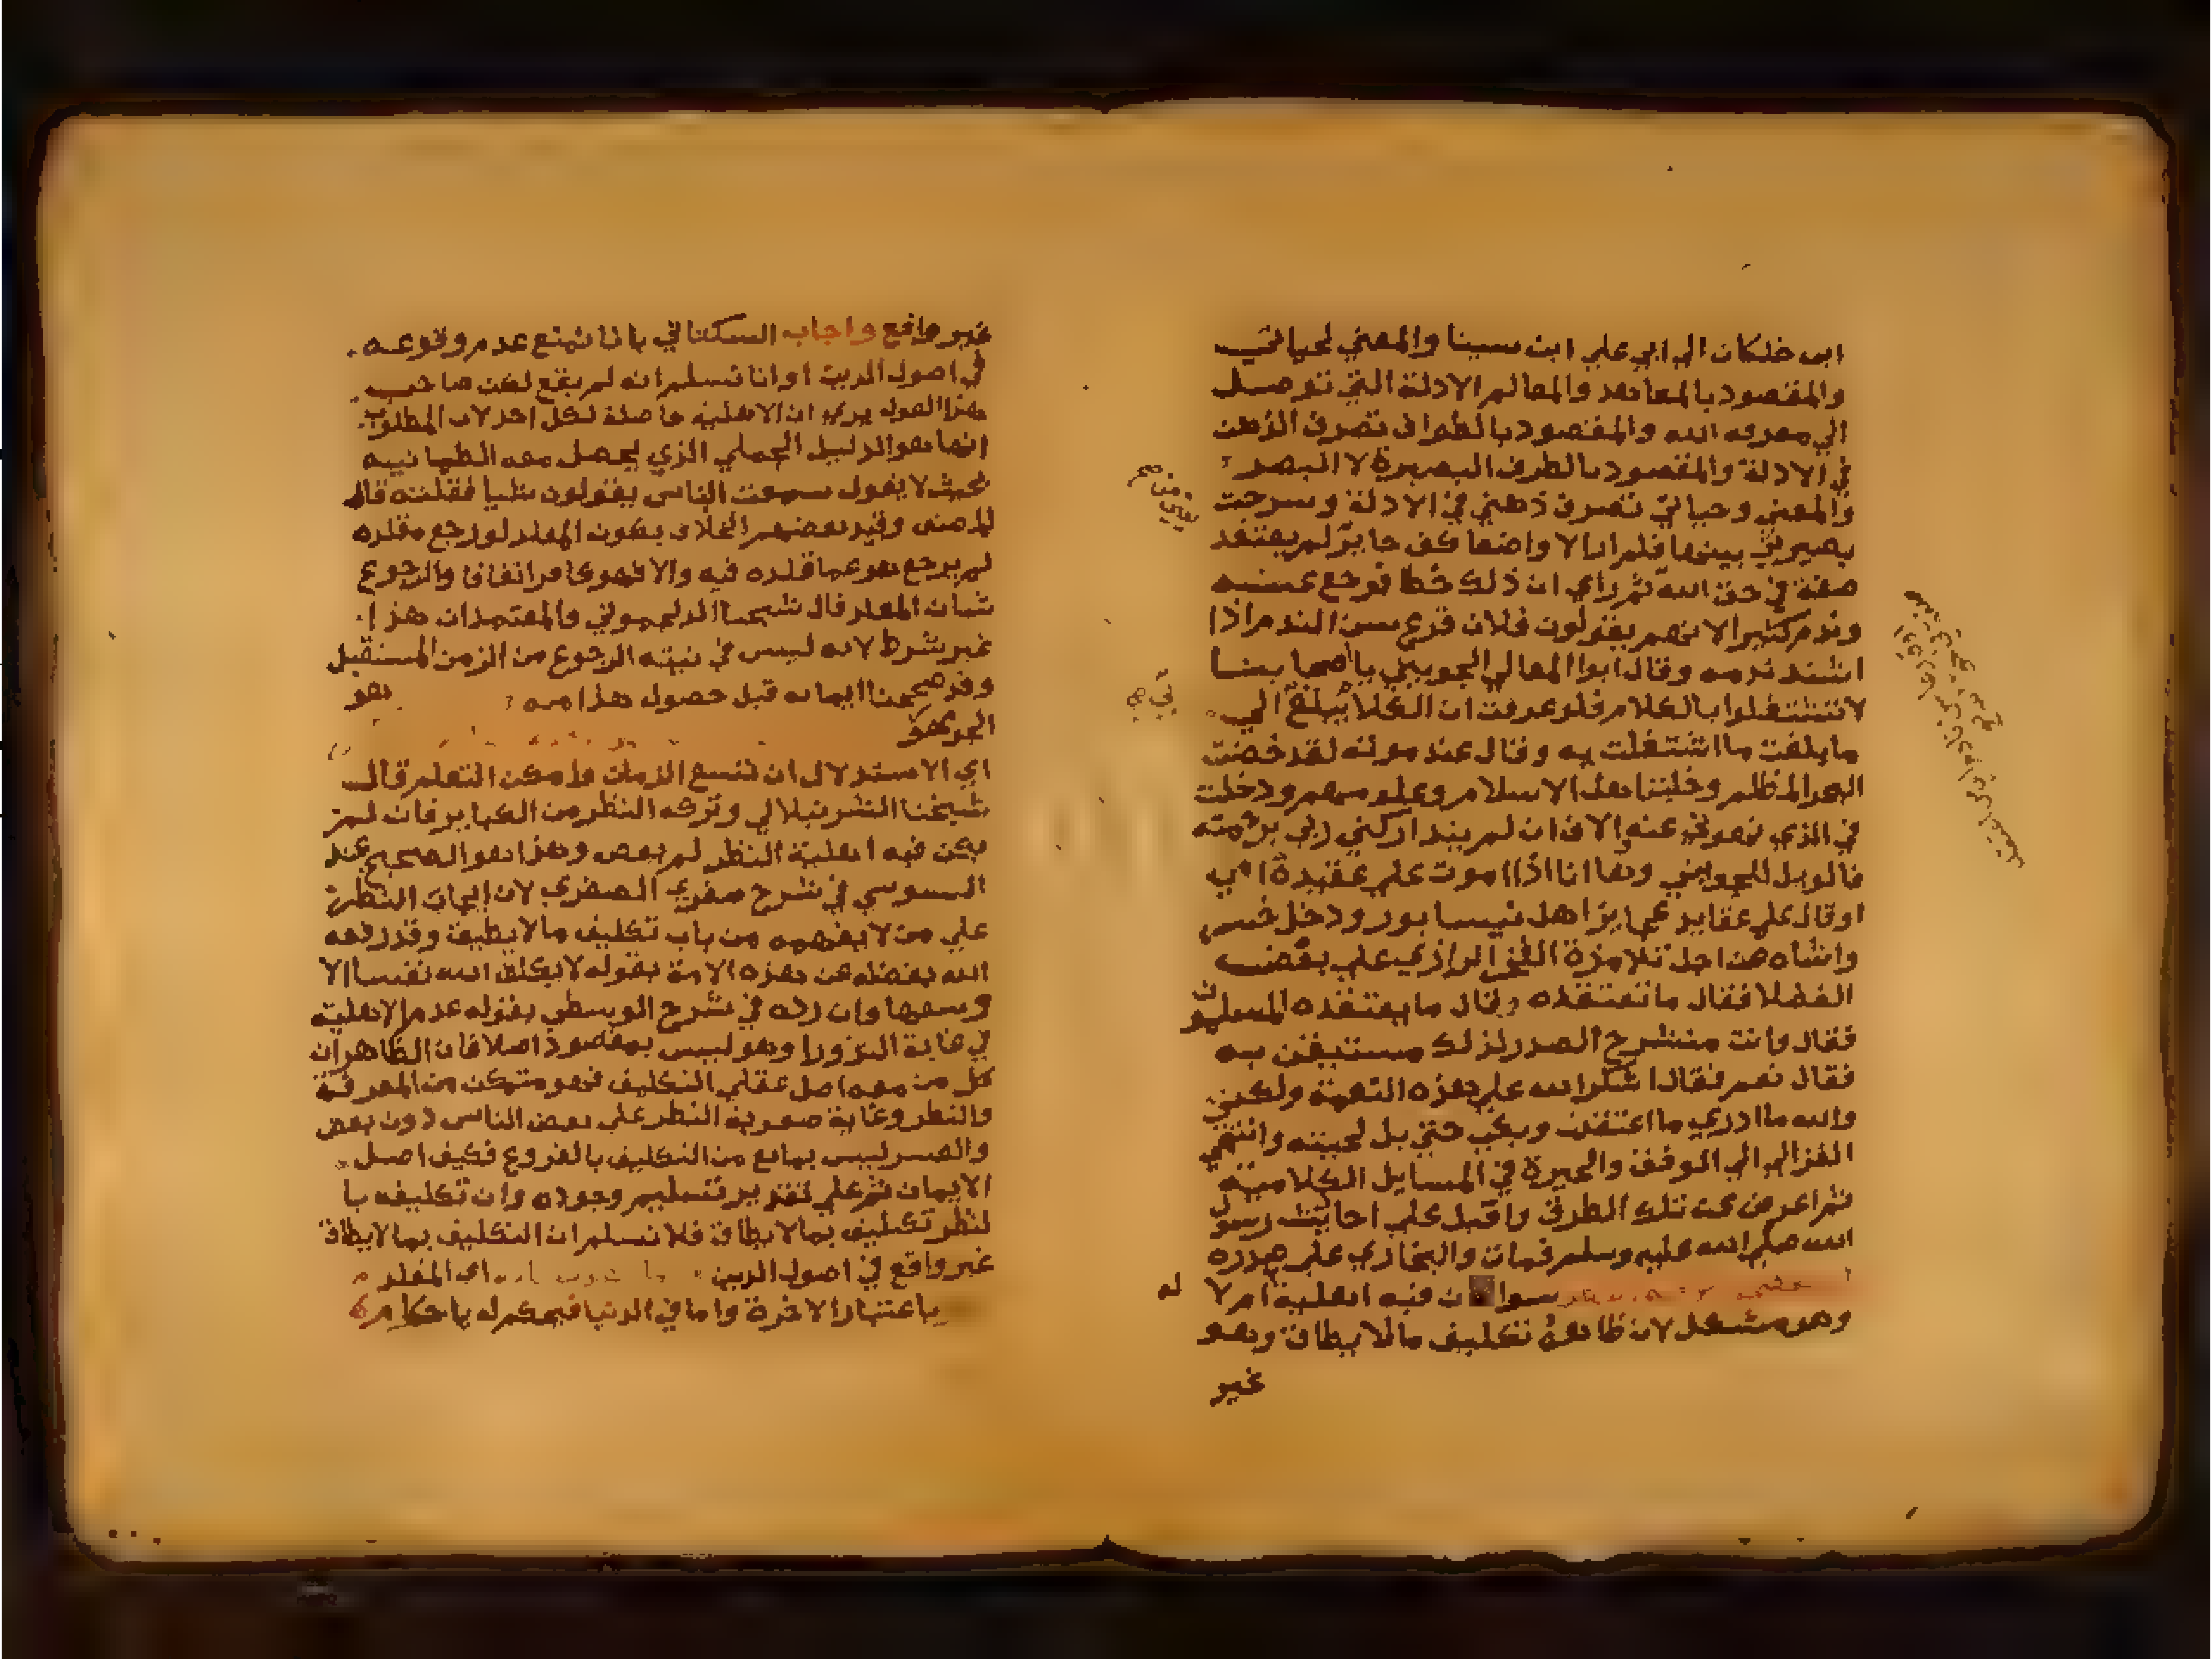 ابن خلكان الي ابي علي ابن سينا والمعني لحياتي
والمقصود بالمعاهد والمعالم الادلة التي توصل
الي معرفه الله والمقصود بالطواف تصرف الذهن
في الادلة والمقصود بالطرف البصيرة لا البصر
والمعني وحياتي تصرف ذهني في الادلة وسرحت
بصيرتي بينها فلم ار الا واضعا كف حاير لم يعتقد
صفة في حق الله ثم راي ان ذلك خطا فرجع عنه
وندم كثيرا لانهم يقولون فلان قرع سن الندم اذا
اشتد ندمه وقال ابوا المعالي الجويني يا اصحابنا
لا تشتغلوا بالكلام فلو عرفت ان الكلام يبلغ الي
ما بلغت ما اشتغلت به وقال عند موته لقد خضت
البحر المظلم وخليت اهل الاسلام وعلومهم ودخلت
في الذي نهوني عنه والان ان لم يتداركني ربي برحمته
فالويل للجويني وها انا اذا اموت علي عقيدة امي
او قال علي عقايد عجايز اهل نيسابور ودخل خسر
واشاه من اجل تلامذة الفخر الرازي علي بعض
الفضلا فقال ما تعتقده قال ما يعتقده المسلمون
فقال وانت منشرح الصدر لذلك مستيقن به
فقال نعم فقال اشكر الله علي هذه النعمة ولكني
والله ما ادري ما اعتقد وبكي حتي بل لحيته وانتهي
الغزالي الي الوقف والحيرة في المسايل الكلامية
ثم اعرض عن تلك الطرق واقبل علي احاديث رسول
الله صلي الله عليه وسلم فمات والبخاري علي صدره
سوا ن فيه اهلية ام لا
وهو مشكل لان ظاهره تكليف ما لا يطاق وهو
غير
غير واقع واجاب السكتاني بانا نمنع عدم وقوعه
في اصول الدين او انا نسلم انه لم يقع لكن صاحب
هذا القول يري ان الاهلية حاصلة لكل احد لان المطلوب
انما هو الدليل الجملي الذي يحصل معه الطمانينه
بحيث لا يقول سمعت الناس يقولون شيا فقلته قاله
المصنف وقيد بعضهم الخلاف بكون المقلد لو رجع مقلده
لم يرجع هو عما قلده فيه والا فهو كافر اتفاقا والرجوع
شان المقلد قال شيخنا الدلجموني والمعتمد ان هذا
غير شرط لانه ليس في نيته الرجوع من الزمن المستقبل
وقد صححنا ايمانه قبل حصول هذا منه
اي الاستدلال ان اتسع الزمان وامكن التعلم قال
شيخنا الشرنبلالي وتركه النظر من الكباير فان لم
يكن فيه اهلية النظر لم يعص وهذا هو الصحيح عند
السنوسي في شرح صغري الصغري لان ايجاب النظر
علي من لا يفهمه من باب تكليف ما لا يطيق وقد رفعه
الله بفضله عن هذه الامة بقوله لا يكلف الله نفسا الا
وسعها وان رده في شرح الوسطي بقوله عدم الاهلية
في غاية الندور وهو ليس بمقصود اصلا فان الظاهر ان
كل من معه اصل عقلي التكليف فهو متمكن من المعرفة
والنظر وغاية صعوبة النظر علي بعض الناس دون بعض
والعسر ليس بمانع من التكليف بالفروع فكيف اصل
الايمان ثم علي تقدير تسليم وجوده وان تكليفه با
لنظر تكليف بما لا يطاق فلا نسلم ان التكليف بما لا يطاق
غير واقع في اصول الدين اي المقلد
باعتبار الاخرة واما في الدنيا فيحكم له باحكام